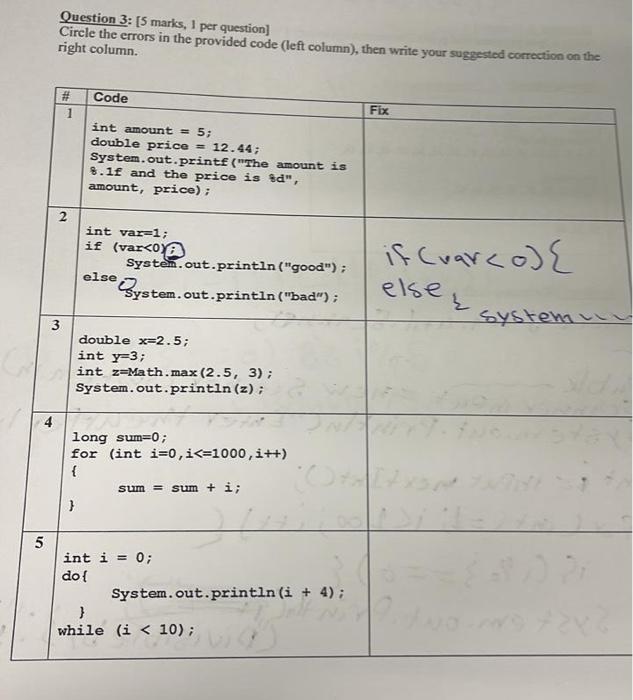 Question 3: [5 marks, 1 per question]
Circle the errors in the provided code (left column), then write your suggested correction on the
right column.
# Code Fix
1
int amount = 5;
double price = 12.44;
System.out.printf("The amount is
%.1f and the price is %d",
amount, price);
2
int var=1;
if (var<0);
System.out.println("good");
else
System.out.println("bad");
if (var<0){
else {
system
3
double x=2.5;
int y=3;
int z=Math.max(2.5, 3);
System.out.println(z);
4
long sum=0;
for (int i=0,i<=1000,i++)
{
sum = sum + i;
}
5
int i = 0;
do{
System.out.println(i + 4);
}
while (i < 10);